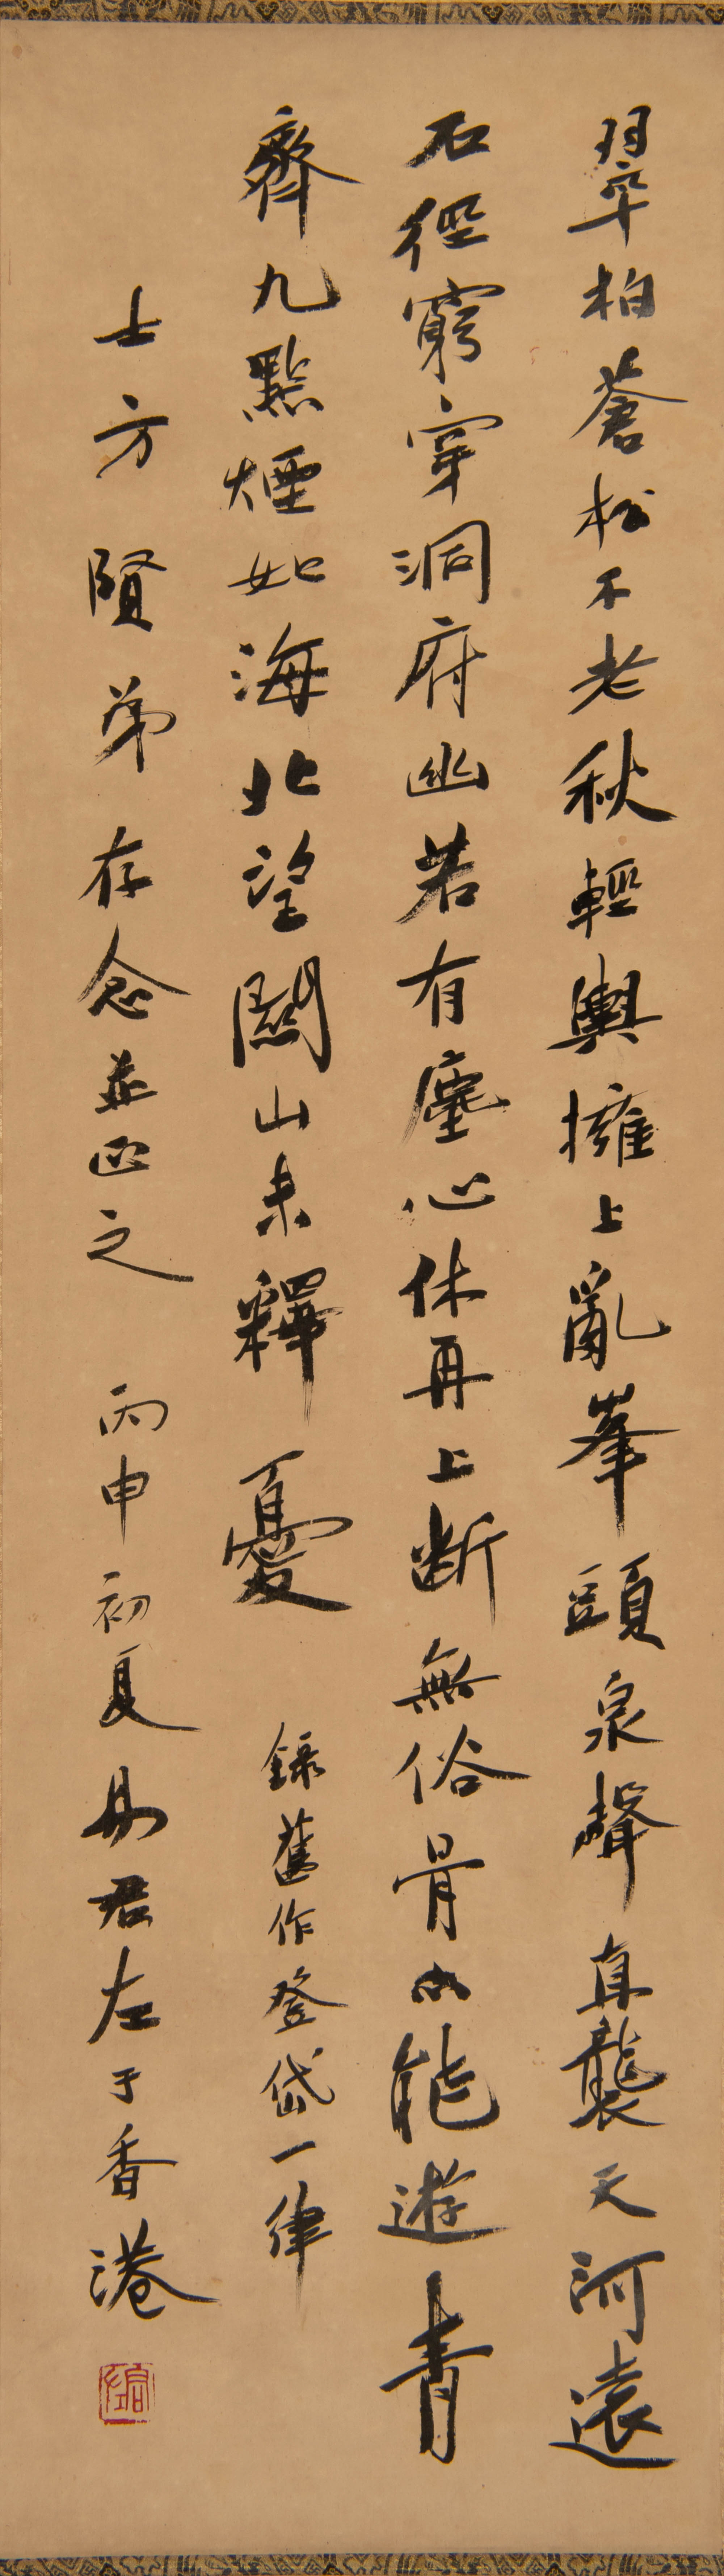 翠柏蒼松不老秋輕輿擁上亂峯頭泉聲直襲天河遠
石徑窮穿洞府幽若有塵心休再上斷無俗骨而能遊青
齊九點煙如海北望關山未釋憂 錄舊作登岱一律
士方賢弟存念並正之 丙申初夏易君左于香港